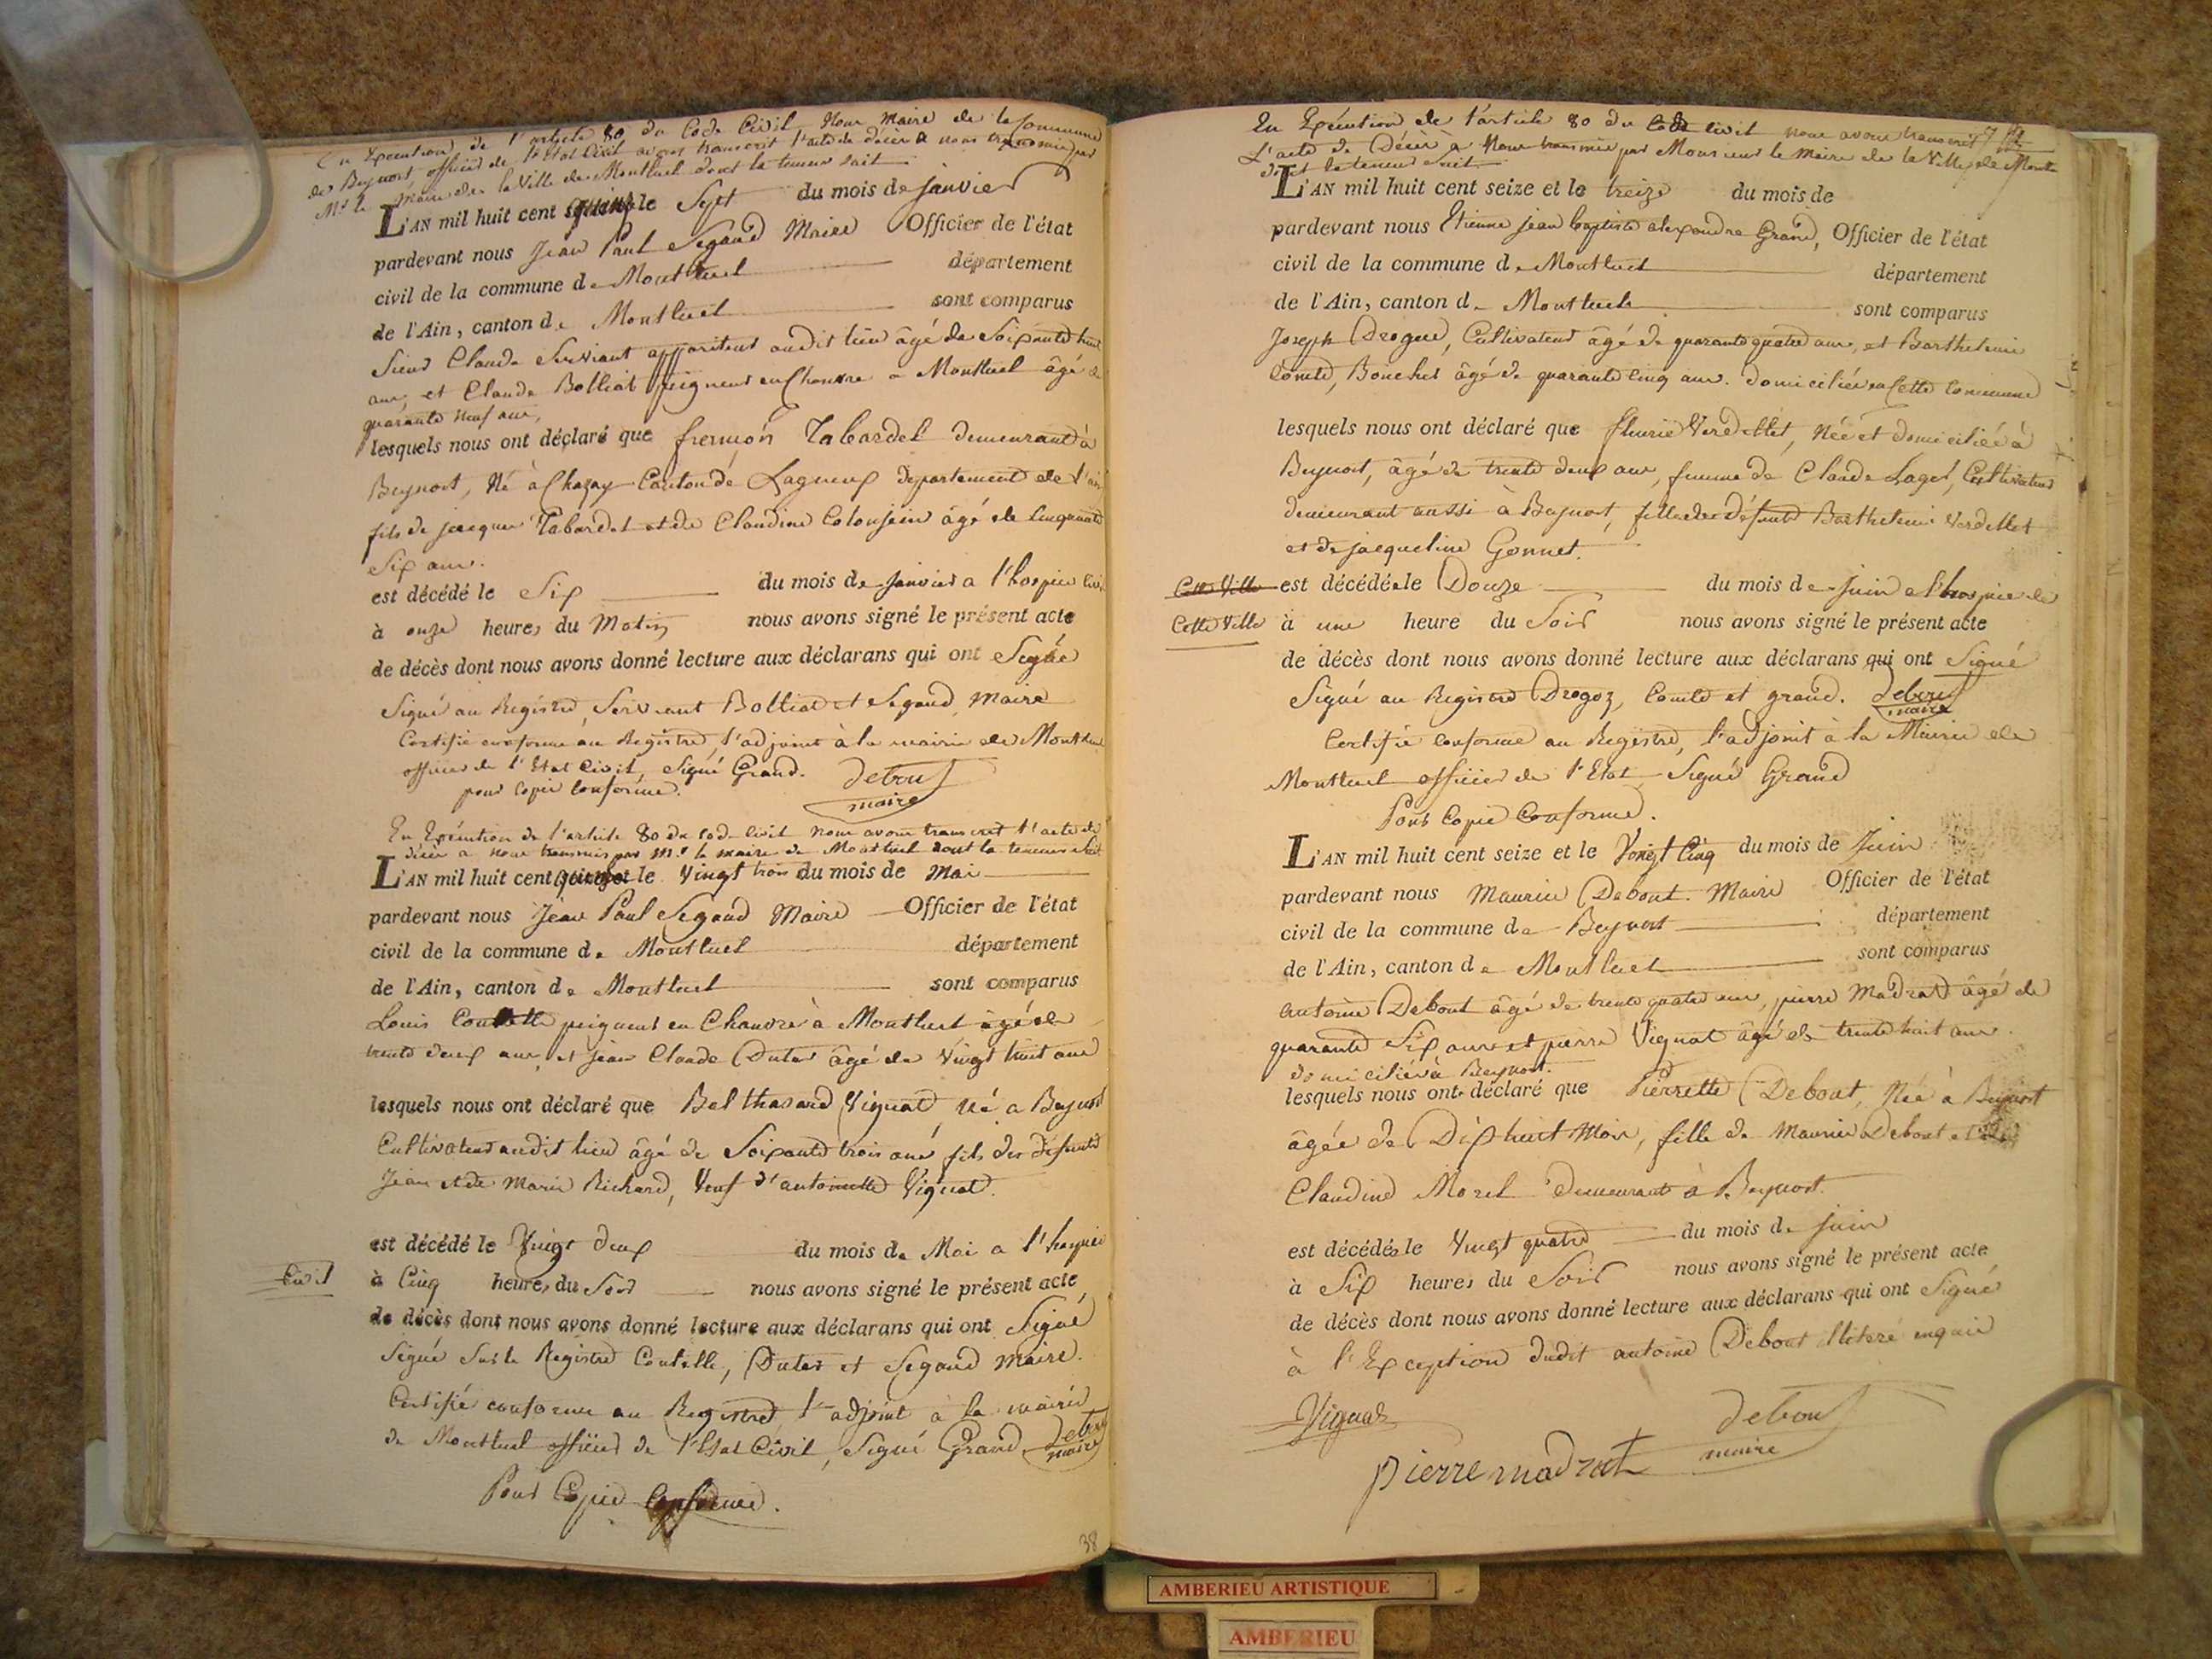 En Execution de l'article 80 du Code Civil Nous Maire de la Commune
de Beynost officier de l'Etat Civil avons transcrit l'acte de décès à nous transmis par
Mr le Maire de la Ville de Montluel dont la teneur suit
L'AN mil huit cent le Sept du mois de janvier
pardevant nous Jean Paul Segaud Maire Officier de l'état
civil de la commune de Montluel département
de l'Ain, canton de Montluel sont comparus
Sieur Claude Servant appariteur audit lieu âgé de Soixante huit
ans, et Claude Bolliat peigneur en Chanvre a Montluel âgé de
quarante neuf ans,
lesquels nous ont déclaré que Tabardel demeurant à
Beynost, Né à Chazay Canton de Lagneux departement de l'ain
fils de jacques Tabardel et de Claudine âgé de Cinquante
Six ans.
est décédé le Six du mois de janvier a l'hospice Civil
à onze heures du Matin nous avons signé le présent acte
de décès dont nous avons donné lecture aux déclarans qui ont Signé
Signé au Registre, Servant Bolliat et Segaud Maire
Certifié conforme au Registre, l'adjoint à la mairie de Montluel
officier de l'Etat Civil, Signé Grand. debout
pour Copie Conforme. maire
En Exécution de l'article 80 du code civil nous avons transcrit l'acte de
décès a nous transmis par Mr le maire de Montluel dont la teneur suit
L'AN mil huit cent le Vingt trois du mois de Mai
pardevant nous Jean Paul Segaud Maire Officier de l'état
civil de la commune de Montluel département
de l'Ain, canton de Montluel sont comparus
Louis peigneur en Chanvre à Montluel âgé de
trente deux ans, et jean Claude Duter âgé de Vingt huit ans
lesquels nous ont déclaré que Balthasard Vignat, né a Beynost
Cultivateur audit lieu âgé de Soixante trois ans fils des défunts
Jean et de Marie Richard, Veuf d'antoinette Vignat.
est décédé le Vingt deux du mois de Mai a l'hospice
Civil à Cinq heures du Soir nous avons signé le présent acte,
de décès dont nous avons donné lecture aux déclarans qui ont Signé
Signé sur le Registre Coutelle, Duter et Segaud Maire.
Certifié conforme au Registre l'adjoint a la mairie
de Montluel officier de l'Etat Civil, Signé Grand debout
maire
Pour Copie Conforme.
38
En Exécution de l'article 80 du Code Civil nous avons transcrit
L'acte de Décès à Nous transmis par Monsieur le Maire de la Ville de Montluel
dont la teneur suit.
L'AN mil huit cent seize et le treize du mois de
pardevant nous Etienne jean baptiste alexandre Grand, Officier de l'état
civil de la commune de Montluel département
de l'Ain, canton de Montluel sont comparus
Joseph Drogue, Cultivateur âgé de quarante quatre ans, et Barthelemi
Comte, Boucher âgé de quarante cinq ans. domiciliés en Cette Commune
lesquels nous ont déclaré que fleurie Verdellet, Née et domiciliée à
Beynost, âgé de trente deux ans, femme de Claude Laget, Cultivateur
demeurant aussi à Beynost, fille de défunt Barthelemi Verdellet
et de jacqueline Gonnet.
Cette Ville est décédée le Douze du mois de juin a l'hospice de
Cette Ville à une heure du Soir nous avons signé le présent acte
de décès dont nous avons donné lecture aux déclarans qui ont Signé
Signé au Registre Drogoz, Comte et grand. debout
maire
Certifié Conforme au Régistre, l'adjoint à la Mairie de
Montluel officier de l'Etat Signé Grand
Pour Copie Conforme.
L'AN mil huit cent seize et le Vingt Cinq du mois de Juin
pardevant nous Maurice Debout Maire Officier de l'état
civil de la commune de Beynost département
de l'Ain, canton de Montluel sont comparus
antoine Debout âgé de trente quatre ans, pierre Madrat âgé de
quarante Six ans et pierre Vignat âgé de trente huit ans.
domiciliés à Beynost.
lesquels nous ont déclaré que Pierrette Debout, Née à Beynost
âgée de Dixhuit Mois, fille de Maurice Debout et de
Claudine Morel demeurant à Beynost.
est décédée le Vingt quatre du mois de juin
à Six heures du Soir nous avons signé le présent acte
de décès dont nous avons donné lecture aux déclarans qui ont Signé
à l'Exception dudit antoine Debout illiteré enquis
Vignat debout
pierre madrat maire
AMBERIEU ARTISTIQUE
AMBERIEU